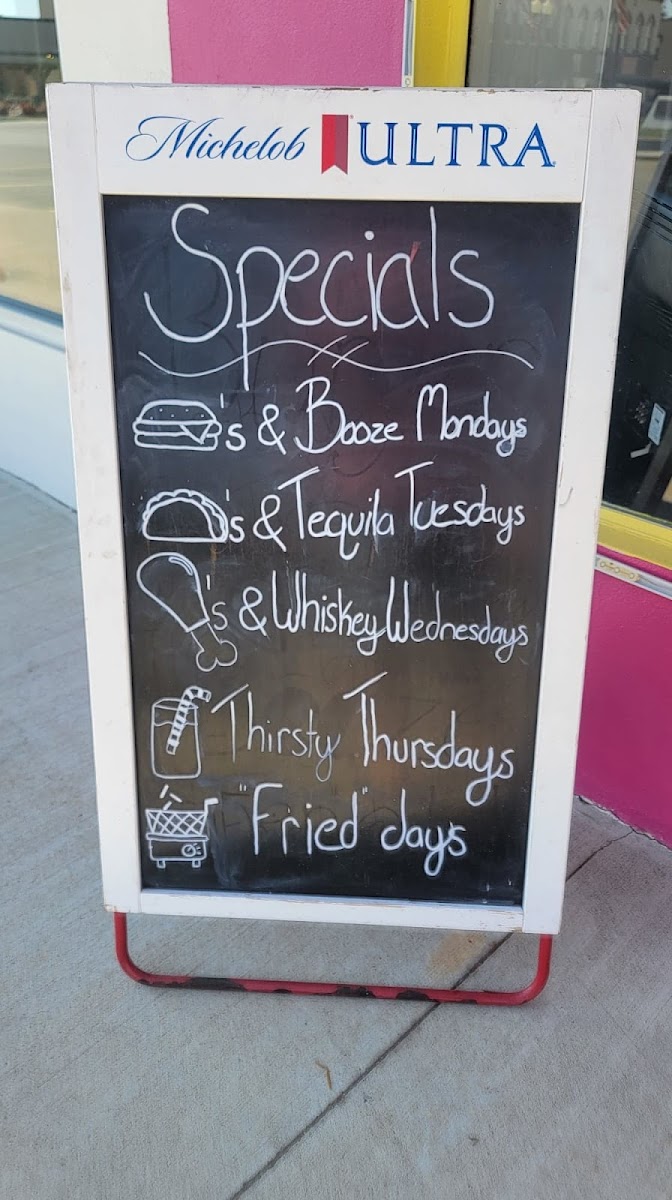 Michelob ULTRA
Specials
's & Booze Mondays
's & Tequila Tuesdays
's & Whiskey Wednesdays
Thirsty Thursdays
"Fried" days